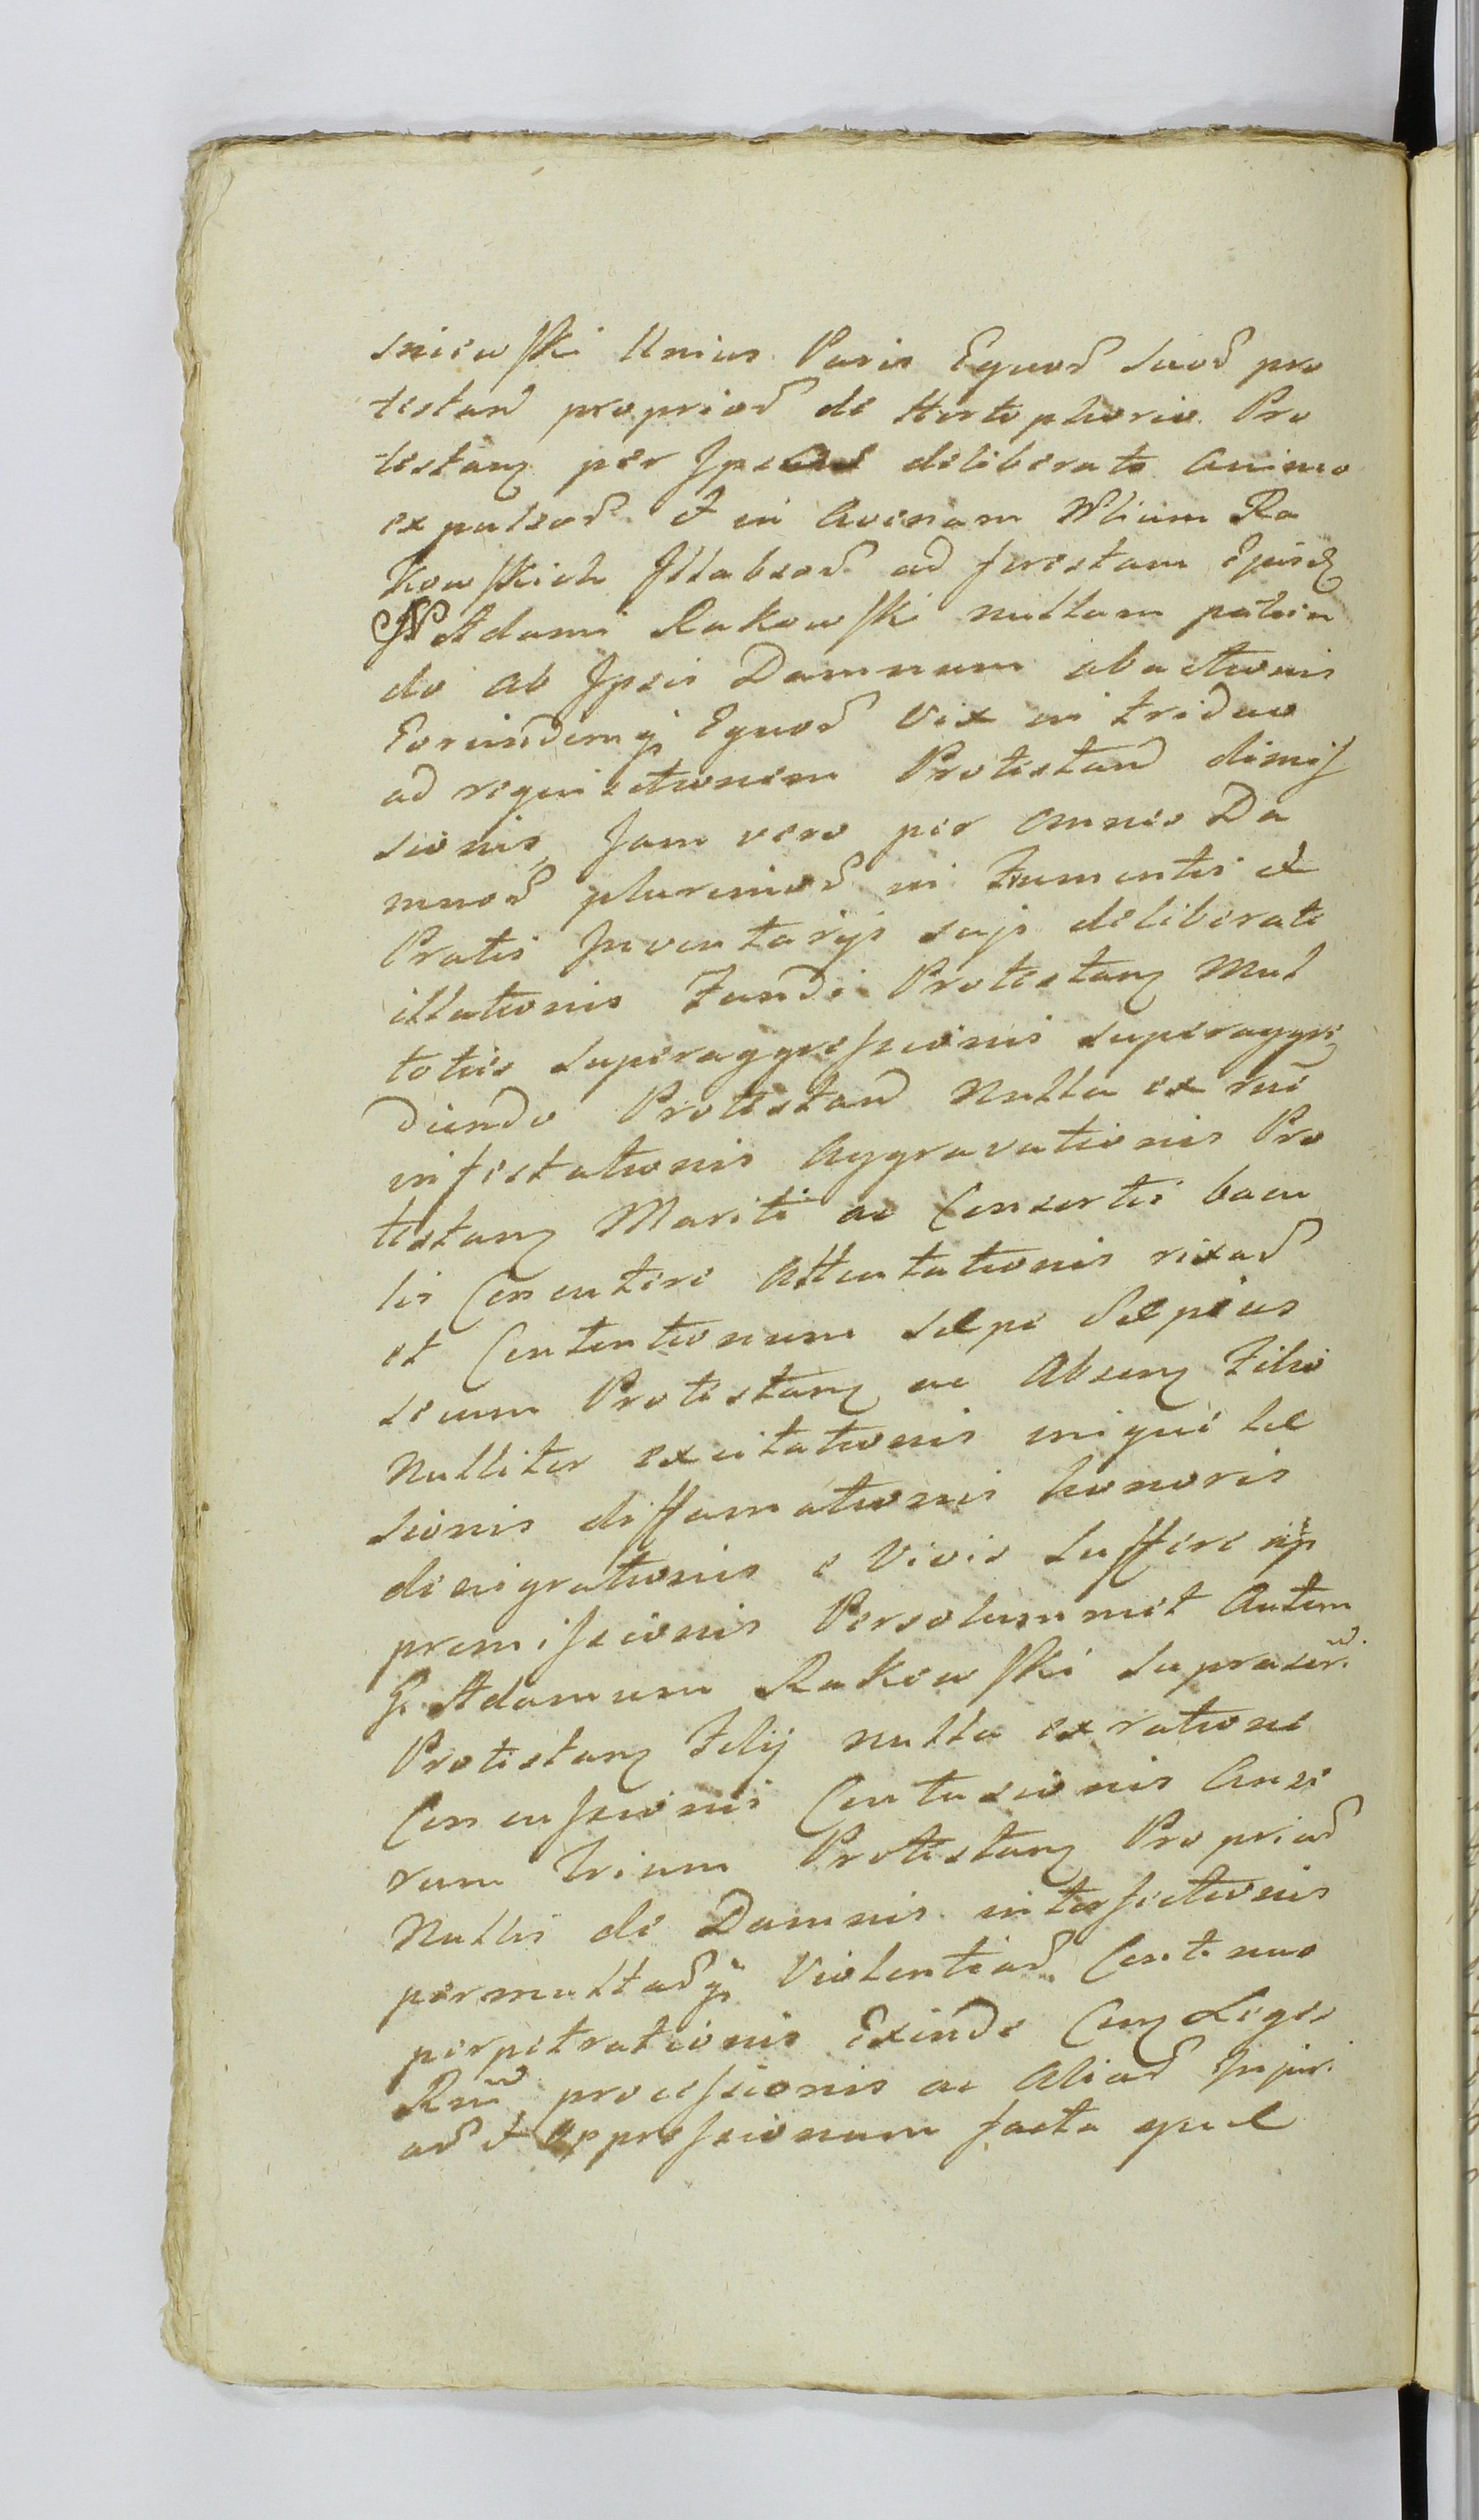 sniewski Unius Paris Equor suor pro
testan propriar de Hortophorio Pro
testanz per Ipsos deliberate animo
expulsor et in Avenam Nlium Ra
kowskich Illabsor ad Instam Ejusd
N Adami Rakowski nullam patien
do ab Ipsis Damnum abactionis
Eorundemq Equor vix in triduo
ad requisitionem Protestan dimis
sionis, Jam vero per omnes Da
mnor plurimor in Frumentis et
Pratis Inventarijs suis deliberate
illationis Fundi Protestanz Mul
toties superaggressionis superaggre
diendo Protestan Nulla ex rne
infestationis Aggravationis Pro
testanz Mariti ac Consortis bacu
lis Concutere Attentationis rixar
et Contentionum Sæpe Sæpius
secum Protestanz ac Absenz Filio
Nulliter excitationis inique læ
sionis diffamationis honoris
denigrationis e Vivis sufferre
promissionis Persolummet Autem
G. Adamum Rakowski suprascr.
Protestanz Filij nulla ex ratione
Concussionis Contusionis Anse
rum trium Protestanz Propriar
Nullis de Damnis interfectionis
permultarq Violentiar Continuo
perpetrationis Exinde Conz Leges
Rni processionis ac Aliar Injuri
ar et oppressionum facta quæ